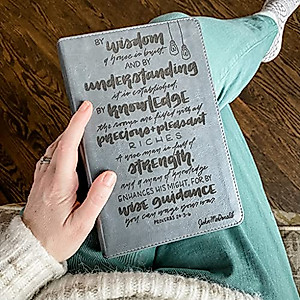 BY wisdom
a house is built
AND BY
understanding
it is established,
BY knowledge
the rooms are filled with all
precious & pleasant
RICHES.
A wise man is full of
STRENGTH,
and a man of knowledge
ENHANCES HIS MIGHT, FOR BY
WISE GUIDANCE
you can wage your war.
PROVERBS 24:3-6
John McDonald